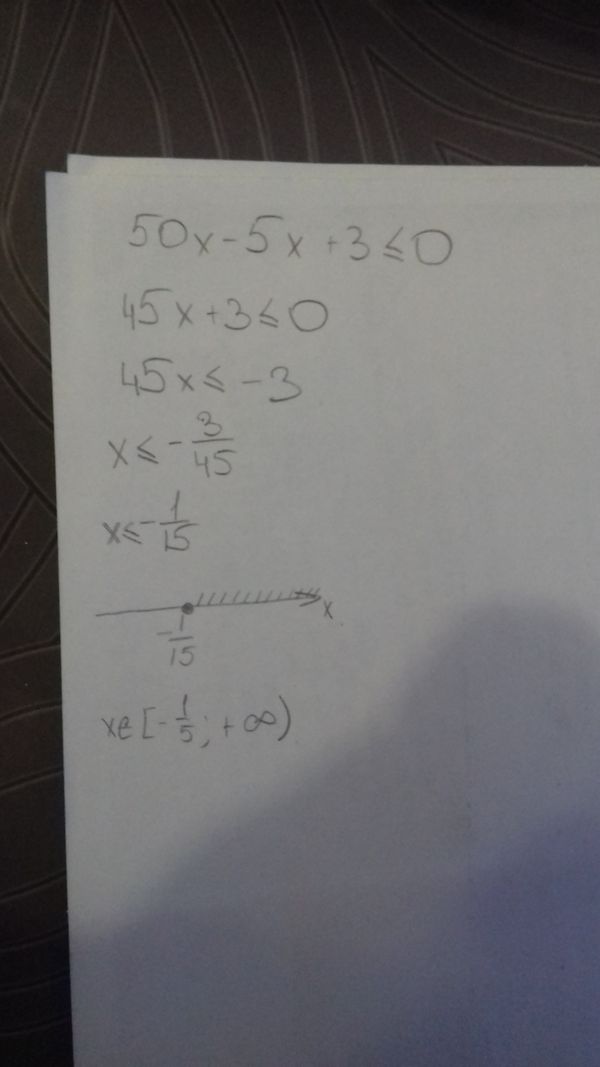 50x - 5x + 3 ≤ 0
45x + 3 ≤ 0
45x ≤ -3
x ≤ -3/45
x ≤ -1/15
x
-1/15
x∈[-1/5; +∞)